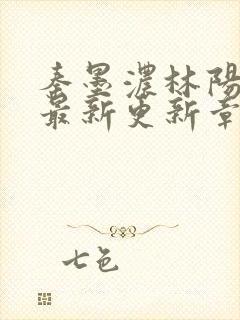 秦墨濃林陽
最新更新章
七色